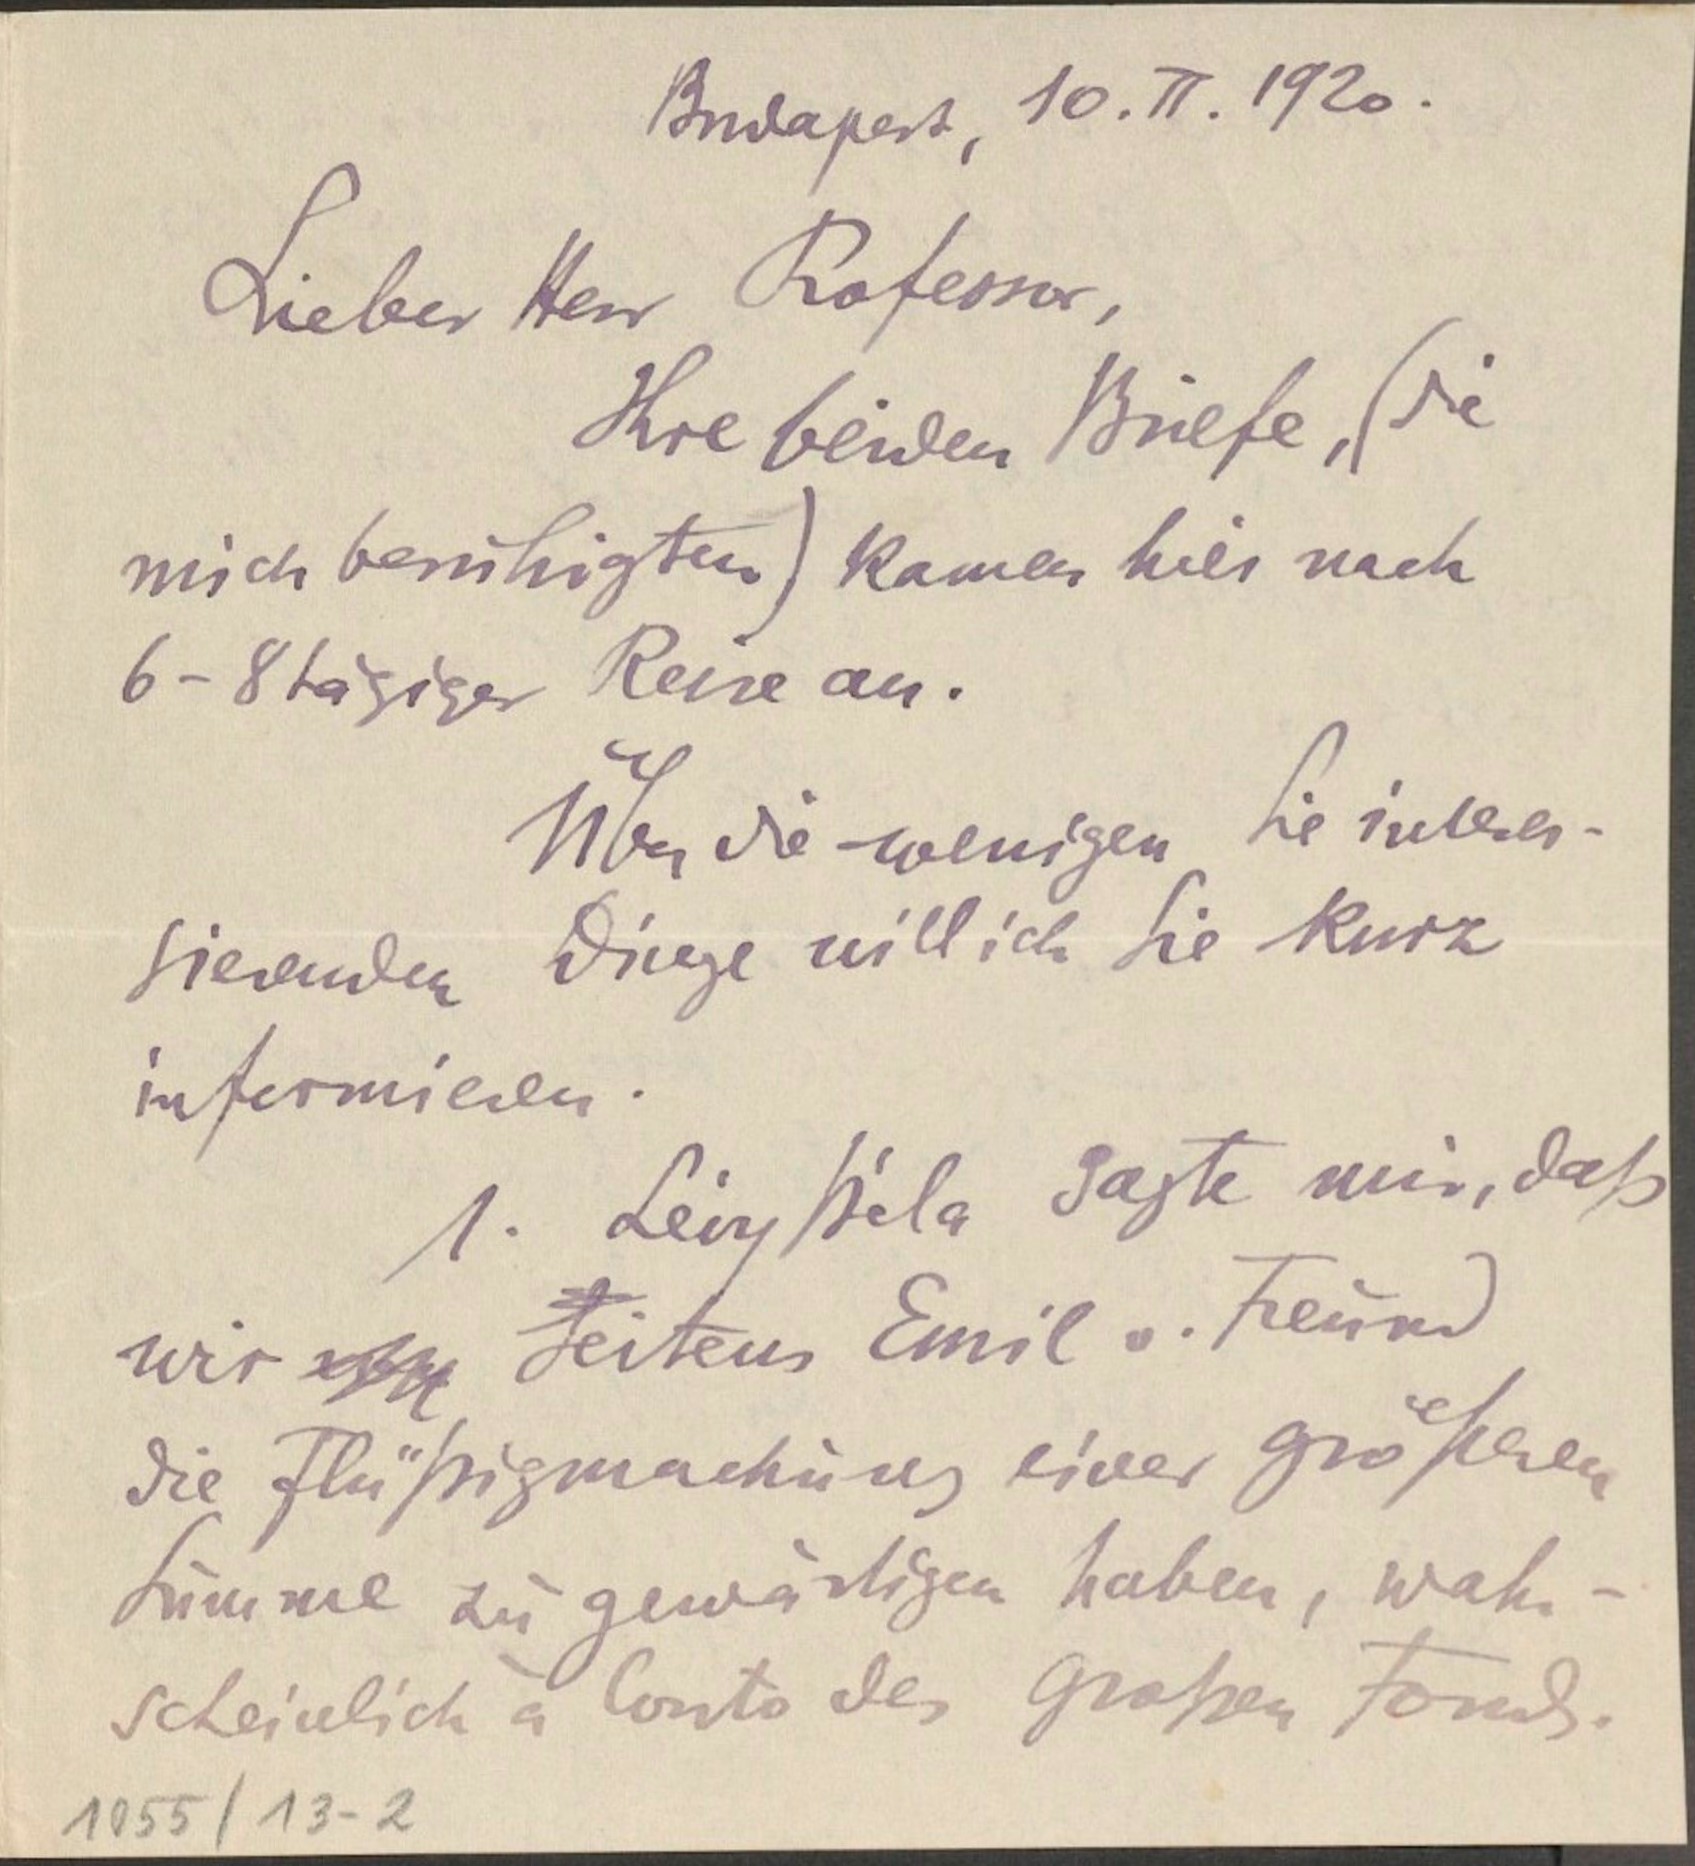 Budapest, 10. II. 1920.
Lieber Herr Professor,
Ihre beiden Briefe, (die
mich beruhigten) kamen hier nach
6-8 tägiger Reise an.
Über die wenigen Sie interes-
sierenden Dinge will ich Sie kurz
informieren.
1. Lévy Béla sagte mir, daß
wir Seitens Emil v. Freund
die Flüßigmachung einer größeren
Summe zu gewärtigen haben, wahr-
scheinlich à Conto des großen Fonds.
1055/13-2